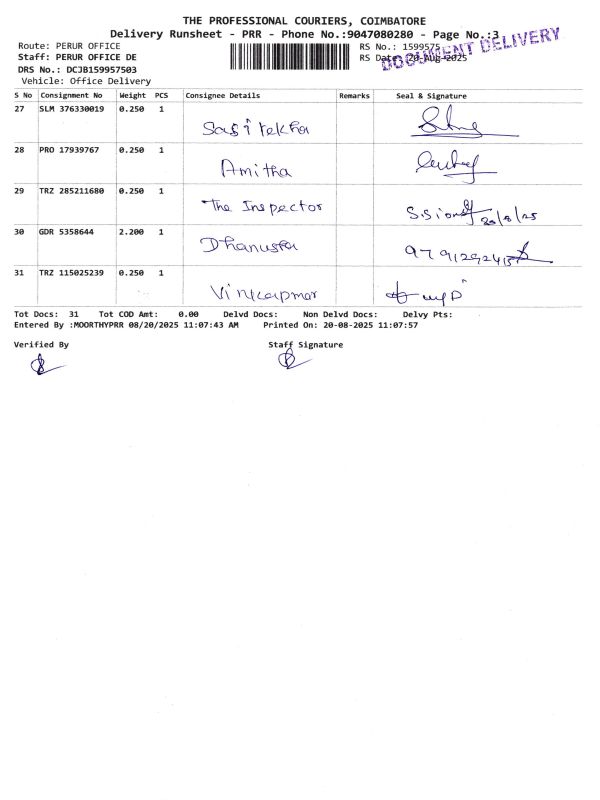 THE PROFESSIONAL COURIERS, COIMBATORE
Delivery Runsheet - PRR - Phone No.:9047080280 - Page No.:3
Route: PERUR OFFICE
RS No.: 1599575
Staff: PERUR OFFICE DE
RS Date: 20-Aug-2025
DOCUMENT DELIVERY
DRS No.: DCJB159957503
Vehicle: Office Delivery
S No Consignment No Weight PCS Consignee Details Remarks Seal & Signature
27 SLM 376330019 0.250 1
Sasirekha
28 PRO 17939767 0.250 1
Amitha
29 TRZ 285211680 0.250 1
The Inspector 20/8/25
30 GDR 5358644 2.200 1
31 TRZ 115025239 0.250 1
Tot Docs: 31 Tot COD Amt: 0.00 Delvd Docs: Non Delvd Docs: Delvy Pts:
Entered By :MOORTHYPRR 08/20/2025 11:07:43 AM Printed On: 20-08-2025 11:07:57
Verified By Staff Signature